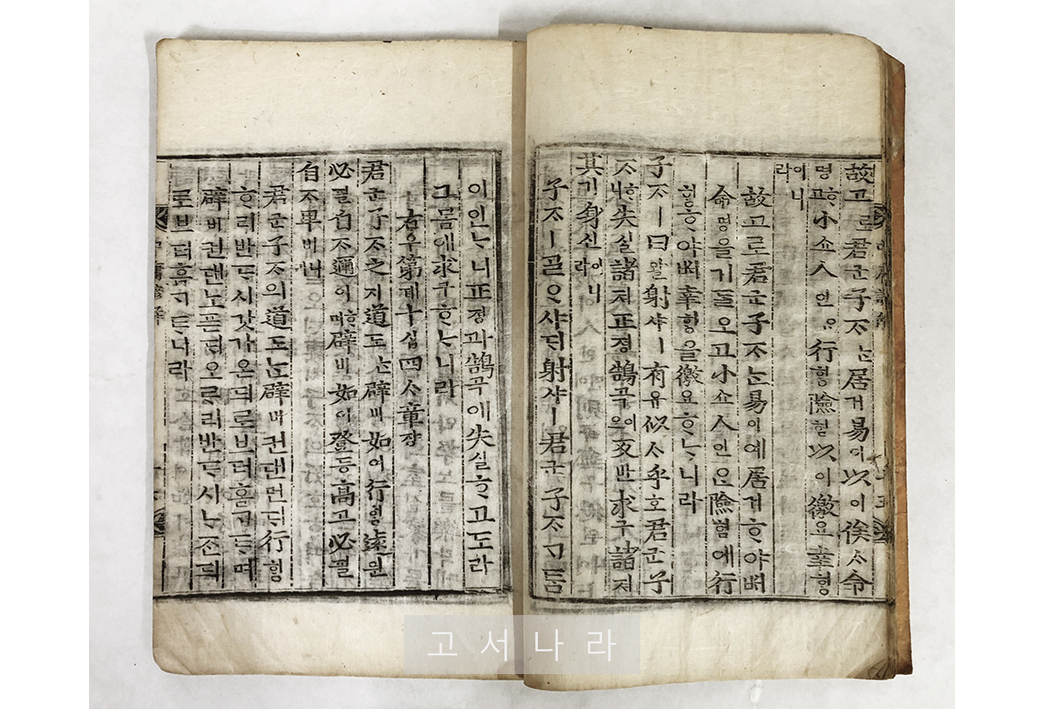 故고로君군子ᄌᆞᄂᆞᆫ居거易이以이俟ᄉᆞ命
명ᄒᆞ고小쇼人인은行ᄒᆡᆼ險험以이徼요幸ᄒᆡᆼ
이니라
故고로君군子ᄌᆞᄂᆞᆫ易이예居거ᄒᆞ야ᄡᅥ
命명을기ᄃᆞᆯ오고小쇼人인은險험에行
ᄒᆡᆼᄒᆞ야ᄡᅥ幸ᄒᆡᆼ을徼요ᄒᆞᄂᆞ니라
子ᄌᆞㅣ曰왈射샤ㅣ有유似ᄉᆞ乎호君군子
ᄌᆞᄒᆞ니失실諸져正졍鵠곡이오反반求구諸져
其기身신이니라
子ᄌᆞㅣᄀᆞᆯᄋᆞ샤ᄃᆡ射샤ㅣ君군子ᄌᆞㄱᄐᆞᆷ
이인ᄂᆞ니正졍과鵠곡애失실ᄒᆞ고도라
그몸애求구ᄒᆞᄂᆞ니라
右우第뎨十십四ᄉᆞ章쟝
君군子ᄌᆞ之지道도ᄂᆞᆫ辟비如여行ᄒᆡᆼ遠원
必필自ᄌᆞ邇이ᄒᆞ며辟비如여登등高고必필
自ᄌᆞ卑비니라
君군子ᄌᆞ의道도ᄂᆞᆫ辟비컨댄먼ᄃᆡ行ᄒᆡᆼ
ᄒᆞ리반ᄃᆞ시갓가온ᄃᆡ로브터홈ᄀᆞᄐᆞ며
辟비컨댄노ᄑᆞᆫᄃᆡ오ᄅᆞ리반ᄃᆞ시ᄂᆞᄌᆞᆫᄃᆡ
로브터홈ᄀᆞᄐᆞ니라
고서나라